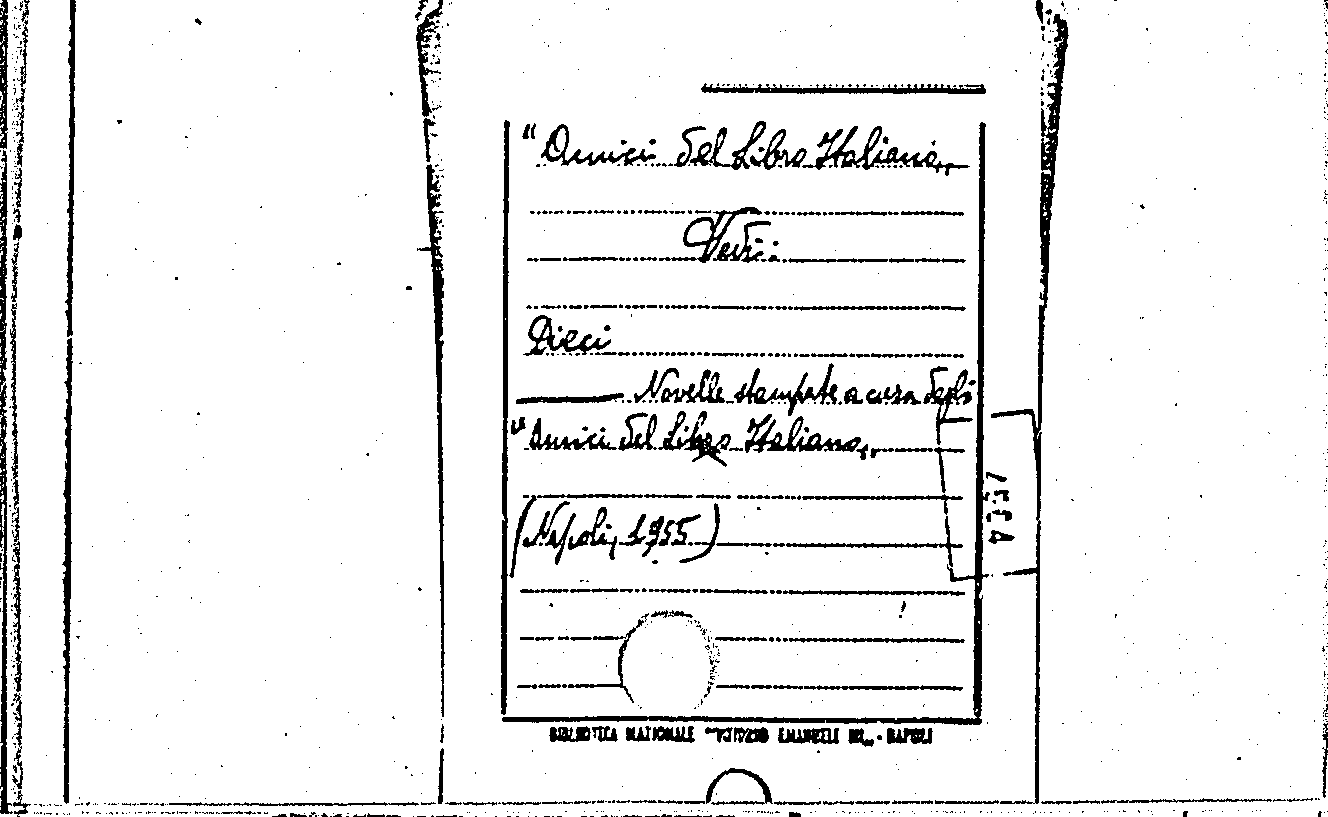 "Amici del Libro Italiano„
Vedi:
Dieci
——— Novelle stampate a cura degli
"Amici del Libro Italiano„
(Napoli, 1955)
BIBLIOTECA NAZIONALE "VITTORIO EMANUELE III„ - NAPOLI